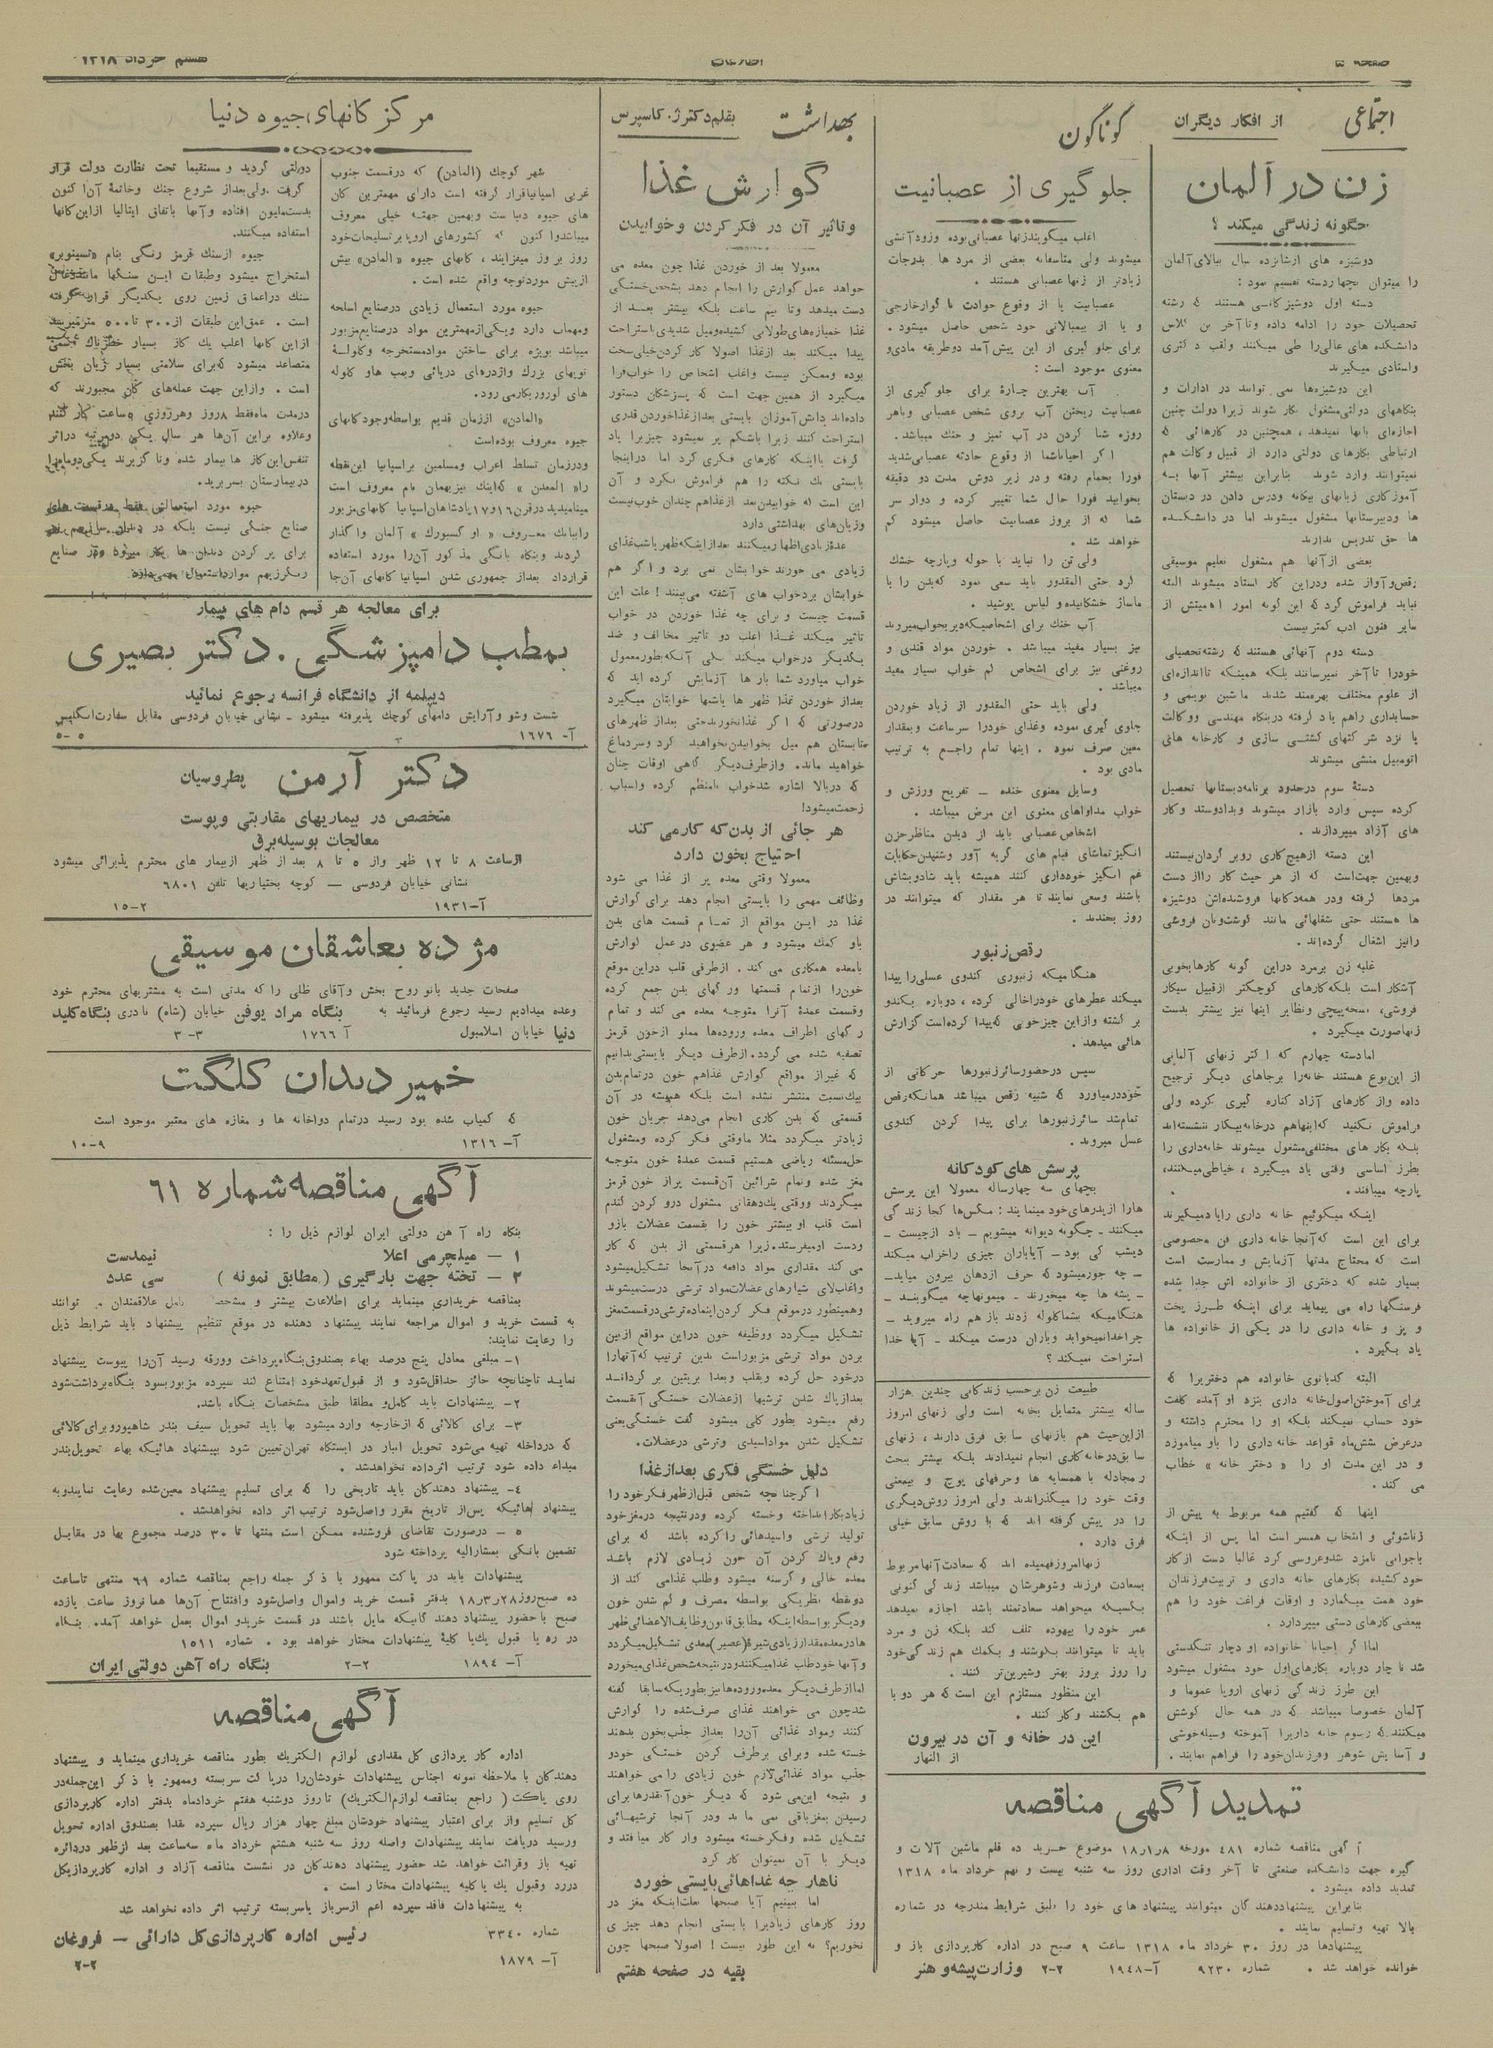 صفحه ۳
اطلاعات
هشتم خرداد ۱۳۱۸
اجتماعی
از افکار دیگران
زن در آلمان
چگونه زندگی میکند ؟
دوشیزه های ازشانزده سال ببالای آلمان
را میتوان بچهاردسته تقسیم نمود :
دسته اول دوشیزگانی هستند که رشته
تحصیلات خود را ادامه داده وتا آخرین کلاس
دانشکده های عالی را طی میکنند ولقب دکتری
واستادی میگیرند
این دوشیزه‌ها نمی توانند در ادارات و
بنگاههای دولتی مشغول کار شوند زیرا دولت چنین
اجازه‌ای بآنها نمیدهد ، همچنین در کارهائی که
ارتباطی بکارهای دولتی دارد از قبیل وکالت هم
نمیتوانند وارد شوند بنابراین بیشتر آنها بـه
آموزگاری زبانهای بیگانه ودرس دادن در دبستان
ها ودبیرستانها مشغول میشوند اما در دانشکده
ها حق تدریس ندارند
بعضی ازآنها هم مشغول تعلیم موسیقی
رقص وآواز شده ودراین کار استاد میشوند البته
نباید فراموش کرد که این گونه امور اهمیتش از
سایر فنون ادب کمترنیست
دسته دوم آنهائی هستند که رشته تحصیلی
خودرا تاآخر نمیرسانند بلکه همینکه تااندازه‌ای
از علوم مختلف بهره‌مند شدند ماشین نویسی و
حسابداری راهم یاد گرفته دربنگاه مهندسی ووکالت
یا نزد شرکتهای کشتی سازی و کارخانه هائی
اتومبیل منشی میشوند
دستهٔ سوم درحدود برنامه دبستانها تحصیل
کرده سپس وارد بازار میشوند وبدادوستد وکار
های آزاد میپردازند.
این دسته ازهیچ کاری روبر گردان نیستند
وبهمین جهت‌است که از هر حیث کار راازدست
مردها گرفته ودر همه دکانها فروشنده‌اش دوشیزه
ها هستند حتی شغلهائی مانند گوشت ونان فروشی
رانیز اشغال کرده‌اند .
غلبه زن برمرد دراین گونه کارها بخوبی
آشکار است بلکه کارهای کوچکتر ازقبیل سیگار
فروشی، نسخه‌پیچی ونظایر اینها نیز بیشتر بدست
زنها صورت میگیرد .
امادسته چهارم که اکثر زنهای آلمانی
از این نوع هستند خانه‌را برجاهای دیگر ترجیح
داده واز کارهای آزاد کناره گیری کرده ولی
فراموش نکنید که اینهاهم درخانه بیکار ننشسته‌اند
بلکه بکار های مختلفی مشغول میشوند خانه‌داری را
بطرز اساسی وفنی یاد میگیرد ، خیاطی میکنند،
پارچه میبافند .
اینکه میگوئیم خانه داری رایاد میگیرند
برای این است که آنجا خانه داری فن مخصوصی
است که محتاج مدتها آزمایش و ممارست است
بسیار شده که دختری از خانواده اش جدا شده
فرسنگها راه می پیماید برای اینکه طـرز پخت
و پز و خانه داری را در یکی از خانواده ها
یاد بگیرد .
البته کدبانوی خانواده هم دخترانی که
برای آموختن‌اصول خانه داری بنزد او آمده کلفت
خود حساب نمیکند بلکه او را محترم داشته و
درعرض شش‌ماه قواعد خانه داری را باو میاموزد
و در این مدت او را « دختر خانه » خطاب
می کند .
اینها که گفتیم همه مربوط به پیش از
زناشوئی و انتخاب همسر است اما پس از اینکه
باجوانی نامزد شدوعروسی کرد غالبا دست ازکار
خود کشیده بکارهای خانه داری و تربیت‌فرزندان
خود همت میگمارد و اوقات فراغت خود را هم
ببعضی کارهای دستی میپردازد .
امااگر احیانا خانواده او دچار تنگدستی
شد ناچار دوباره بکارهای‌اول خود مشغول میشود
این طرز زندگی زنهای اروپا عموما و
آلمان خصوصا میباشد که در همه حال کوشش
میکنند که رسوم خانه داریرا آموخته وسیله‌خوشی
و آسایش شوهر وفرزندان خود را فراهم نمایند .
گوناگون
جلو گیری از عصبانیت
اغلب میگویند زنها عصبانی بوده وزود آتشی
میشوند ولی متاسفانه بعضی از مرد ها بدرجات
زیادتر از زنها عصبانی هستند .
عصبانیت یا از وقوع حوادث ناگوارخارجی
و یا از بیمبالاتی خود شخص حاصل میشود .
برای جلوگیری از این پیش آمد دوطریقه مادی و
معنوی موجود است :
آب بهترین چـارهٔ برای جلو گیری از
عصبانیت ریختن آب بروی شخص عصبانی ویاهر
روزه شنا کردن در آب تمیز و خنک میباشد .
اگر احیاناشما از وقوع حادثه عصبانی شدید
فورا بحمام رفته و در زیر دوش مدت دو دقیقه
بخوابید فورا حال شما تغییر کرده و دوار سر
شما که از بروز عصبانیت حاصل میشود کم
خواهد شد .
ولی تن را نباید با حوله وپارچه خشک
کرد حتی المقدور باید سعی نمود که‌بدن را با
ماساژ خشکانیده و لباس پوشید .
آب خنک برای اشخاصیکه دیر بخواب میروند
نیز بسیار مفید میباشد . خوردن مواد قندی و
روغنی نیز برای اشخاص کم خواب بسیار مفید
میباشد .
ولی باید حتی المقدور از زیاد خوردن
جلوی گیری نموده وغذای خودرا سرساعت وبمقدار
معین صرف نمود . اینها تمام راجع به ترتیب
مادی بود .
وسایل معنوی خنده ــ تفریح ورزش و
خواب مداواهای معنوی این مرض میباشد .
اشخاص عصبانی باید از دیدن مناظرحزن
انگیز تماشای فیلم های گریه آور وشنیدن حکایات
غم انگیز خودداری کنند همیشه باید شادوبشاش
باشند وسعی نمایند تا هر مقدار که میتوانند در
روز بخندند .
رقص زنبور
هنگامیکه زنبوری کندوی عسلی را پیدا
میکند عطرهای خودراخالی کرده ، دوباره بکندو
برگشته وازاین چیزخوبی که پیدا کرده‌است گزارش
هائی میدهد .
سپس درحضورسائرزنبورها حرکاتی از
خوددرمیاورد که شبیه رقص میباشد همانکه رقص
تمام‌شد سائر زنبورها برای پیدا کردن کندوی
عسل میروند .
پرسش های کودکانه
بچهای سه چهارساله معمولا این پرسش
هارا ازپدرهای خود مینمایند : مگس‌ها کجا زندگی
میکنند ــ چگونه دیوانه میشویم ــ باد ازچیست ــ
دیشب کی بود ــ آیاباران چیزی راخراب میکند
ــ چه جورمیشود که حرف ازدهان بیرون میاید ــ
ــ پشه ها چه میخورند . میمونهاچه میگوینــد ــ
هنگامیکه بشماگلوله زدند بازهم راه میروید ــ
چراخدانمیخوابد وباران درست میکند . آیا خدا
استراحت نمیکند ؟
طبیعت زن برحسب زندگانی چندین هزار
ساله بیشتر متمایل بخانه است ولی زنهای امروز
ازاین‌حیث هم بازنهای سابق فرق دارند ، زنهای
سابق درخانه کاری انجام نمیدادند بلکه بیشتر ببحث
ومجادله با همسایه ها وحرفهای پوچ و بیمعنی
وقت خود را میگذراندند ولی امروز روش‌دیگری
را در پیش گرفته اند که با روش سابق خیلی
فرق دارد .
زنها امروز فهمیده اند که سعادت آنها مربوط
بسعادت فرزند وشوهرشان میباشد زندگی کنونی
بکسیکه میخواهد سعادتمند باشد اجازه نمیدهد
عمر خود را بیهوده تلف کند بلکه زن و مرد
باید تا میتوانند بکوشند و بکمک هم زندگی خود
را روز بروز بهتر وشیرین‌تر کنند .
این منظور مستلزم این است که هر دو با
هم بکشند وکار کنند .
این در خانه و آن در بیرون
از النهار
تمدید آگهی مناقصه
آگهی مناقصه شماره ۴۸۱ مورخه ۱۸ر۱ر۸ موضوع خـریـد ده قلم ماشین آلات و
گیره جهت دانشکده صنعتی تا آخر وقت اداری روز سه شنبه بیست و نهم خرداد ماه ۱۳۱۸
تمدید داده میشود .
بنابراین پیشنهاددهندگان میتوانند پیشنهاد های خود را طبق شرایط مندرجه در شماره
بالا تهیه وتسلیم نمایند .
پیشنهادها در روز ۳۰ خرداد ماه ۱۳۱۸ ساعت ۹ صبح در اداره کارپردازی باز و
خوانده خواهد شد . شماره ۹۲۳۰ آ-۱۹۴۸ ۲-۲ وزارت پیشه و هنر
بهداشت
بقلم دکتر ژ. کاسپرس
گوارش غذا
وتاثیر آن در فکر کردن وخوابیدن
معمولا بعد از خوردن غذا چون معده می
خواهد عمل گوارش را انجام دهد بشخص‌خستگی
دست میدهد وتا نیم ساعت بلکه بیشتر بعـد از
غذا خمیازه‌های طولانی کشیده ومیل شدیدی باستراحت
پیدا میکند بعد ازغذا اصولا کار کردن‌خیلی‌سخت
بوده وممکن نیست واغلب اشخاص را خواب‌فرا
میگیرد از همین جهت است که پزشکان دستور
داده‌اند دانش‌آموزان بایستی بعدازغذاخوردن قدری
استراحت کنند زیرا باشکم پر نمیشود چیزیرا یاد
گرفت یااینکه کارهای فکری کرد اما دراینجا
بایستی یک نکته را هم فراموش نکرد و آن
این است که خوابیدن‌بعد ازغذاهم چندان خوب‌نیست
وزیان‌های بهداشتی دارد
عدهٔ‌زیادی‌اظهارمیکنند بعدازاینکه ظهر یاشب‌غذای
زیادی می خورند خوابشان نمی برد و اگر هم
خوابشان بردخواب های آشفته می‌بینند ! علت این
قسمت چیست و برای چه غذا خوردن در خواب
تاثیر میکند غـذا اغلب دو تاثیر مخالف و ضد
یکدیگر درخواب میکند یکی آنکه بطورمعمول
خواب میاورد شما بارها آزمایش کرده اید که
بعداز خوردن غذا ظهر ها یاشبها خوابتان میگیرد
درصورتی که اگر غذانخورید حتی بعداز ظهرهای
تابستان هم میل بخوابیدن نخواهید کرد وسردماغ
خواهید ماند. وازطرف‌دیگر گاهی اوقات چنان
که دربالا اشاره شدخواب نامنظم کرده واسباب
زحمت میشود!
هر جائی از بدن که کار می کند
احتیاج بخون دارد
معمولا وقتی معده پر از غذا می شود
وظائف مهمی را بایستی انجام دهد برای گوارش
غذا در این مواقع از تمـام قسمت های بدن
باو کمک میشود و هر عضوی درعمل گوارش
بامعده همکاری می کند . ازطرفی قلب دراین موقع
خون‌را ازتمام قسمتها ورگهای بدن جمع کرده
وقسمت عمدهٔ آنرا متوجه معده می کند و تمام
رگهای اطراف معده وروده‌ها مملو ازخون قرمز
تصفیه شده می گردد. ازطرف دیگر بایستی بدانیم
که غیراز مواقع گوارش غذاهم خون درتمام‌بدن
بیک‌نسبت منتشر نشده است بلکه همیشه در آن
قسمتی که بدن کاری انجام می‌دهد جریان خون
زیادتر میگردد مثلا ماوقتی فکر کرده ومشغول
حل‌مسئله ریاضی هستیم قسمت عمدهٔ خون متوجه
مغز شده وتمام شرائین آن‌قسمت پراز خون قرمز
میگردند ووقتی یک‌دهقانی مشغول درو کردن گندم
است قلب او بیشتر خون را بقسمت عضلات بازو
ودست اومیفرستد. زیرا هرقسمتی از بدن که کار
می کند مقداری مواد دافعه درآنجا تشکیل‌میشود
واغلب‌لای شیارهای عضلات‌مواد ترشی درست‌میشوند
وهمینطور درموقع فکر کردن اینماده ترشی‌درقسمت‌مغز
تشکیل میگردد ووظیفه خون دراین مواقع ازبین
بردن مواد ترشی مزبوراست بدین ترتیب که آنها را
درخود حل کرده وبقلب وبعدا بریتین بر گردانـد
بعدازپاک شدن ترشیها ازعضلات خستگی آنقسمت
رفع میشود بطور کلی میشود گفت خستگی‌یعنی
تشکیل شدن مواداسیدی وترشی درعضلات.
دلیل خستگی فکری بعد ازغذا
اگرچنانچه شخص قبل‌ازظهرفکرخود را
زیادبکار انداخته وخسته کرده ودرنتیجه درمغزخود
تولید ترشی واسیدهائی راکرده باشد که برای
رفع وپاک کردن آن خون زیـادی لازم باشد
معده خالی و گرسنه میشود وطلب غذامی کند از
دونقطه نظر یکی بواسطه مصرف و کم شدن خون
ودیگر بواسطه اینکه مطابق‌قانون وظایف الاعضائی ظهر
هادرمعده مقدارزیادی شیرهٔ (عصیر) معدی تشکیل‌میگردد
وآنها خودطلب غذامیکنند ودر نتیجه شخص‌غذای‌میخورد
امااز طرف‌دیگر معده وروده هانیز بطوریکه سابقا گفته
شد چون می خواهند غذای صرف‌شده را گوارش
کنند ومواد غذائی آن‌را بعداز جذب بخون بدهند
خسته شده وبرای برطرف کردن خستگی خودو
جذب مواد غذائی‌لازم خون زیادی را می خواهند
و نتیجه این‌می شود که دیگر خون آنقدرها برای
رسیدن بمغز باقی نمی ماند ودر آنجا ترشیهائی
تشکیل شده وفکرخسته میشود واز کار میافتد و
دیگر با آن نمیتوان کار کرد
ناهار چه غذاهائی بایستی خورد
اما ببینیم آیا صبحها بعلت‌اینکه مغز در
روز کارهای زیادیرا بایستی انجام دهد چیزی
نخوریم؟ نه این طور نیست ! اصولا صبحها چون
بقیه در صفحه هفتم
مرکز کانهای جیوه دنیا
شهر کوچک (المادن) که درقسمت جنوب
غربی اسپانیاقرار گرفته است دارای مهمترین کان
های جیوه دنیا ست وبهمین جهتــه خیلی معروف
میباشدوا کنون که کشورهای اروپا بر تسلیحات‌خود
روز بروز میفزایند ، کانهای جیوه «المادن» بیش
ازپیش موردتوجه واقع شده است .
جیوه مورد استعمال زیادی درصنایع اسلحه
ومهمات دارد ویکی‌ازمهمترین مواد درصنایع‌مزبور
میباشد بویژه برای ساختن موادمستخرجه وگلولـهٔ
توپهای بزرگ واژدرهای دریائی وبمب هاو گلوله
های لوروربکارمی رود.
«المادن» اززمان قدیم بواسطه وجودکانهای
جیوه معروف بوده‌است
ودرزمان تسلط اعراب ومسلمین براسپانیا این‌نقطه
را «المعدن » که‌اینک نیزبهمان نام معروف است
مینامیدند درقرن ۱۶و۱۷ پادشاهان اسپانیا کانهای‌مزبور
رابیانک معـروف « او گسبورک » آلمان واگذار
کردند وبنگاه بانکی مذکور آن‌را مورد استفاده
قرارداد بعداز جمهوری شدن اسپانیا کانهای آن‌جا
دولتی گردید و مستقیما تحت نظارت دولت قرار
گرفت .ولی‌بعداز شروع جنگ وخاتمهٔ آن‌اکنون
بدست‌ملیون افتاده وآنها باتفاق ایتالیا ازاین کانها
استفاده میکنند.
جیوه ازسنگ قرمز رنگی بنام «تسینوبر»
استخراج میشود وطبقات ایـن سنگها مانندذغال
سنگ دراعماق زمین روی یکدیگر قرارگرفته
است . عمق‌این طبقات از۳۰۰ تا ۵۰۰ مترمیرسد
ازاین کانها اغلب یک گاز بسیار خطرناک
متصاعد میشود که‌برای سلامتی بسیار زیان بخش
است . وازاین جهت عمله‌های کان مجبورند که
درمدت ماه‌فقط ۸روز وهرروزی ۶ساعت کار کنند
وعلاوه براین آن‌ها هر سال یکی دومرتبه دراثر
تنفس این‌گاز ها بیمار شده وناگزیرند یکی‌دوماه‌را
در بیمارستان بسر برید.
جیوه مورد استعمالش فقط در قسمت های
صنایع جنگی نیست بلکه در
برای پر کردن دندان ها بکار میرود ودر صنایع
رنگرزی‌هم
برای معالجه هر قسم دام های بیمار
بمطب دامپزشگی . دکتر بصیری
دیپلمه از دانشگاه فرانسه رجوع نمائید
شست وشو وآرایش دامهای کوچک پذیرفته میشود ــ نشانی خیابان فردوسی مقابل سفارت‌انگلیس
آ- ۱۶۷۶ ۵-۵
دکتر آرمن پطروسیان
متخصص در بیماریهای مقاربتی وپوست
معالجات بوسیله برق
ازساعت ۸ تا ۱۲ ظهر واز ۵ تا ۸ بعد از ظهر ازبیمار های محترم پذیرائی میشود
نشانی خیابان فردوسی ــ کوچه بختیاریها تلفن ۶۸۰۱
آ-۱۹۳۱ ۲-۱۵
مژده بعاشقان موسیقی
صفحات جدید بانو روح بخش وآقای ظلی را که مدتی است به مشتریهای محترم خود
وعده میدادیم رسید رجوع فرمائید به بنگاه مراد یوفن خیابان (شاه) نادری بنگاه کلید
دنیا خیابان اسلامبول آ ۱۷۶۶ ۳-۳
خمیر دندان کلگت
که کمیاب شده بود رسید درتمام دواخانه ها و مغازه های معتبر موجود است
آ- ۱۳۱۶ ۹-۱۰
آگهی مناقصه شماره ۶۱
بنگاه راه آهن دولتی ایران لوازم ذیل را :
۱ – میلچرمی اعلا نیمدست
۲ – تخته جهت بارگیری (مطابق نمونه ) سی عدد
بمناقصه خریداری مینماید برای اطلاعات بیشتر و کامل علاقمندان می توانند
به قسمت خرید و اموال مراجعه نمایند پیشنهاد دهنده در موقع تنظیم پیشنهاد باید شرایط ذیل
را رعایت نمایند:
۱ــ مبلغی معادل پنج درصد بهاء بصندوق‌بنگاه‌پرداخت وورقه رسید آن‌را پیوست پیشنهاد
نماید تاچنانچه حائز حداقل‌شود و از قبول‌تعهدخود امتناع کند سپرده مزبوربسود بنگاه‌برداشت‌شود
۲ــ پیشنهادات باید کامل‌و مطلقا طبق مشخصات بنگاه باشد.
۳ــ برای کالائی که ازخارجه وارد میشود بها باید تحویل سیف بندر شاهپوروبرای کالائی
که درداخله تهیه می‌شود تحویل انبار در ایستگاه تهران‌تعیین شود بپیشنهاد هائیکه بهاء تحویل‌بندر
مبداء داده شود ترتیب اثرداده نخواهدشد .
۴ــ پیشنهاد دهندگان باید تاریخی را که برای تسلیم پیشنهاد معین‌شده رعایت نمایندوبه
پیشنهاد هائیکه پس‌از تاریخ مقرر واصل‌شود ترتیب اثر داده نخواهدشد .
۵ ــ درصورت تقاضای فروشنده ممکن است منتها تا ۳۰ درصد مجموع بها در مقابـل
تضمین بانکی بمشارالیه پرداخته شود
پیشنهادات باید در پاکت ممهور با ذکر جمله راجع بمناقصه شماره ۶۱ منتهی تاساعت
ده صبح‌روز ۲۸ر۳ر۱۸ بدفتر قسمت خرید واموال واصل‌شود وافتتاح آن‌ها همانروز ساعت یازده
صبح باحضور پیشنهاد دهندگانیکه مایل باشند در قسمت خریدو اموال بعمل خواهد آمد. بنگاه
در رد یا قبول یک‌یا کلیهٔ پیشنهادات مختار خواهد بود . شماره ۱۵۱۱
آ- ۱۸۹۴ ۲-۲ بنگاه راه آهن دولتی ایران
آگهی مناقصه
اداره کارپردازی کل مقداری لوازم الکتریک بطور مناقصه خریداری مینماید و پیشنهاد
دهندگان با ملاحظه نمونه اجناس پیشنهادات خودشان‌را درپاکت سربسته وممهور با ذکر این‌جمله‌در
روی پاکت ( راجع بمناقصه لوازم‌الکتریک) تاروز دوشنبه هفتم خردادماه بدفتر اداره کارپردازی
کل تسلیم واز برای اعتبار پیشنهاد خودشان مبلغ چهار هزار ریال سپرده نقدا بصندوق اداره تحویل
ورسید دریافت نمایند پیشنهادات واصله روز سه شنبه هشتم خرداد ماه سه‌ساعت بعد ازظهر دردائره
تهیه باز وقرائت خواهد شد حضور پیشنهاد دهندگان در نشست مناقصه آزاد و اداره کارپردازیکل
دررد وقبول یک یاکلیه پیشنهادات مختار است .
به پیشنهادات فاقد سپرده اعم ازسرباز یاسربسته ترتیب اثر داده نخواهد شد
شماره ۳۳۴۰ رئیس اداره کارپردازی‌کل دارائی – فروغان
آ- ۱۸۷۹ ۲-۲